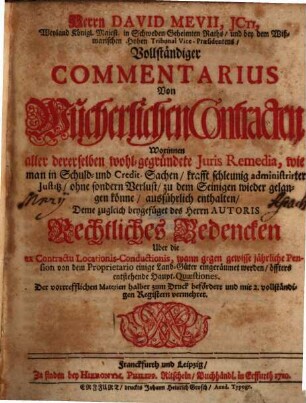 Herrn DAVID MEVII, JCti,
Weyland Königl. Majest. in Schweden Geheimten Raths / und bey dem Wiß-
marischen Hohen Tribunal Vice-Præsidentens /
Vollständiger
COMMENTARIUS
Von
Wucherlichen Contracten
Worinnen
aller dererselben wohl-gegründete Juris Remedia, wie
man in Schuld- und Credit-Sachen / krafft schleunig administrirter
Justitz / ohne sondern Verlust / zu dem Seinigen wieder gelan-
gen könne / ausführlich enthalten /
Deme zugleich beygefüget des Herrn AUTORIS
Rechtliches Bedencken
Uber die
ex Contractu Locationis-Conductionis, wann gegen gewisse jährliche Pen-
sion von dem Proprietario einige Land-Güter eingeräumet werden / öffters
entstehende Haupt-Quæstiones,
Der vortrefflichen Materien halber zum Druck befördert und mit 2. vollständi-
gen Registern vermehret.
Franckfurth und Leipzig /
Zu finden bey HIERONYM. PHILIPP. Ritscheln / Buchhändl. in Erffurth
ERFURT / druckts Johann Heinrich Grosch / Acad. Typogr.